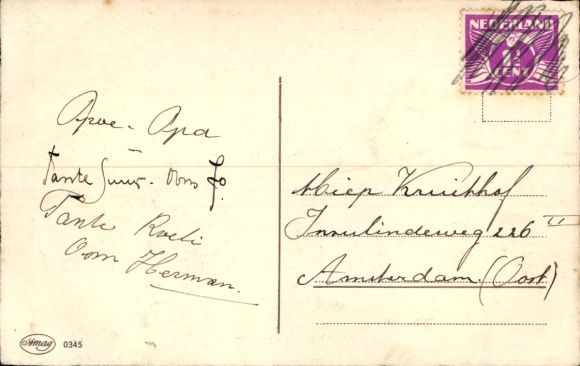 NEDERLAND
1½
CENT
Opoe - Opa
Tante Suus - Oom Jo.
Tante Roeli
Oom Herman.
Miep Kruithof
Insulindeweg 226 II
Amsterdam (Oost)
Amag 0345